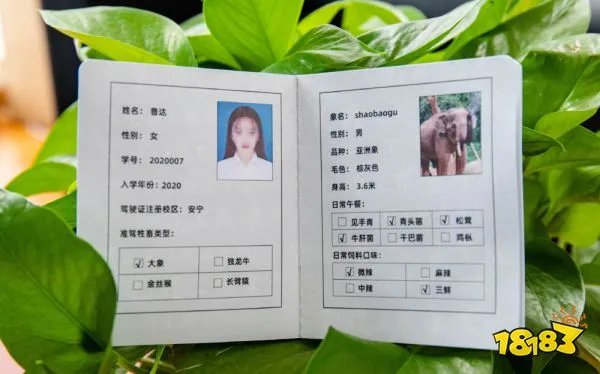 姓名： 鲁达
性别： 女
学号： 2020007
入学年份：2020
驾驶证注册校区：安宁
准驾牲畜类型：
☑ 大象 □ 独龙牛
□ 金丝猴 □ 长臂猿
象名： shaobaogu
性别： 男
品种： 亚洲象
毛色： 棕灰色
身高： 3.6米
日常午餐：
□ 见手青 ☑ 青头菌 ☑ 松茸
☑ 牛肝菌 □ 干巴菌 □ 鸡枞
日常饲料口味：
☑ 微辣 □ 麻辣
□ 中辣 ☑ 三鲜
18183